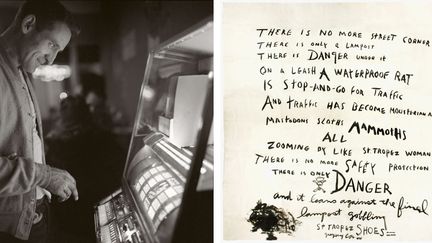 THERE IS NO MORE STREET CORNER
THERE IS ONLY A LAMPOST
THERE IS DANGER UNDER IT
ON A LEASH A WATERPROOF RAT
IS STOP-AND-GO FOR TRAFFIC
AND TRAFFIC HAS BECOME MOUSTERIAN
MASTODONS SLOTHS MAMMOTHS
ALL
ZOOMING BY LIKE ST TROPEZ WOMAN
THERE IS NO MORE SAFETY PROTECTION
THERE IS ONLY
DANGER
and it leans against the final
lampost gobbling
ST TROPEZ SHOES